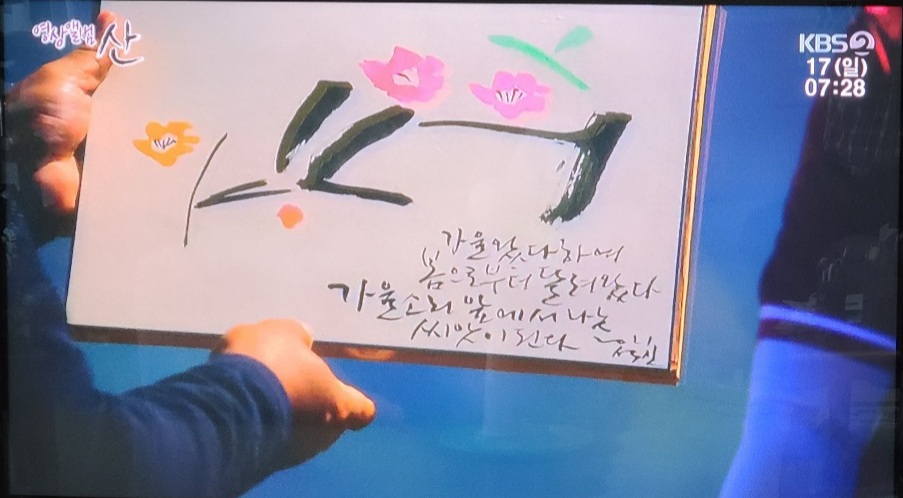 영상앨범 산
KBS2
17(일)
07:28
가을왔다하여
봄으로부터 달려왔다
가을소리 앞에서 나는
씨앗이 된다